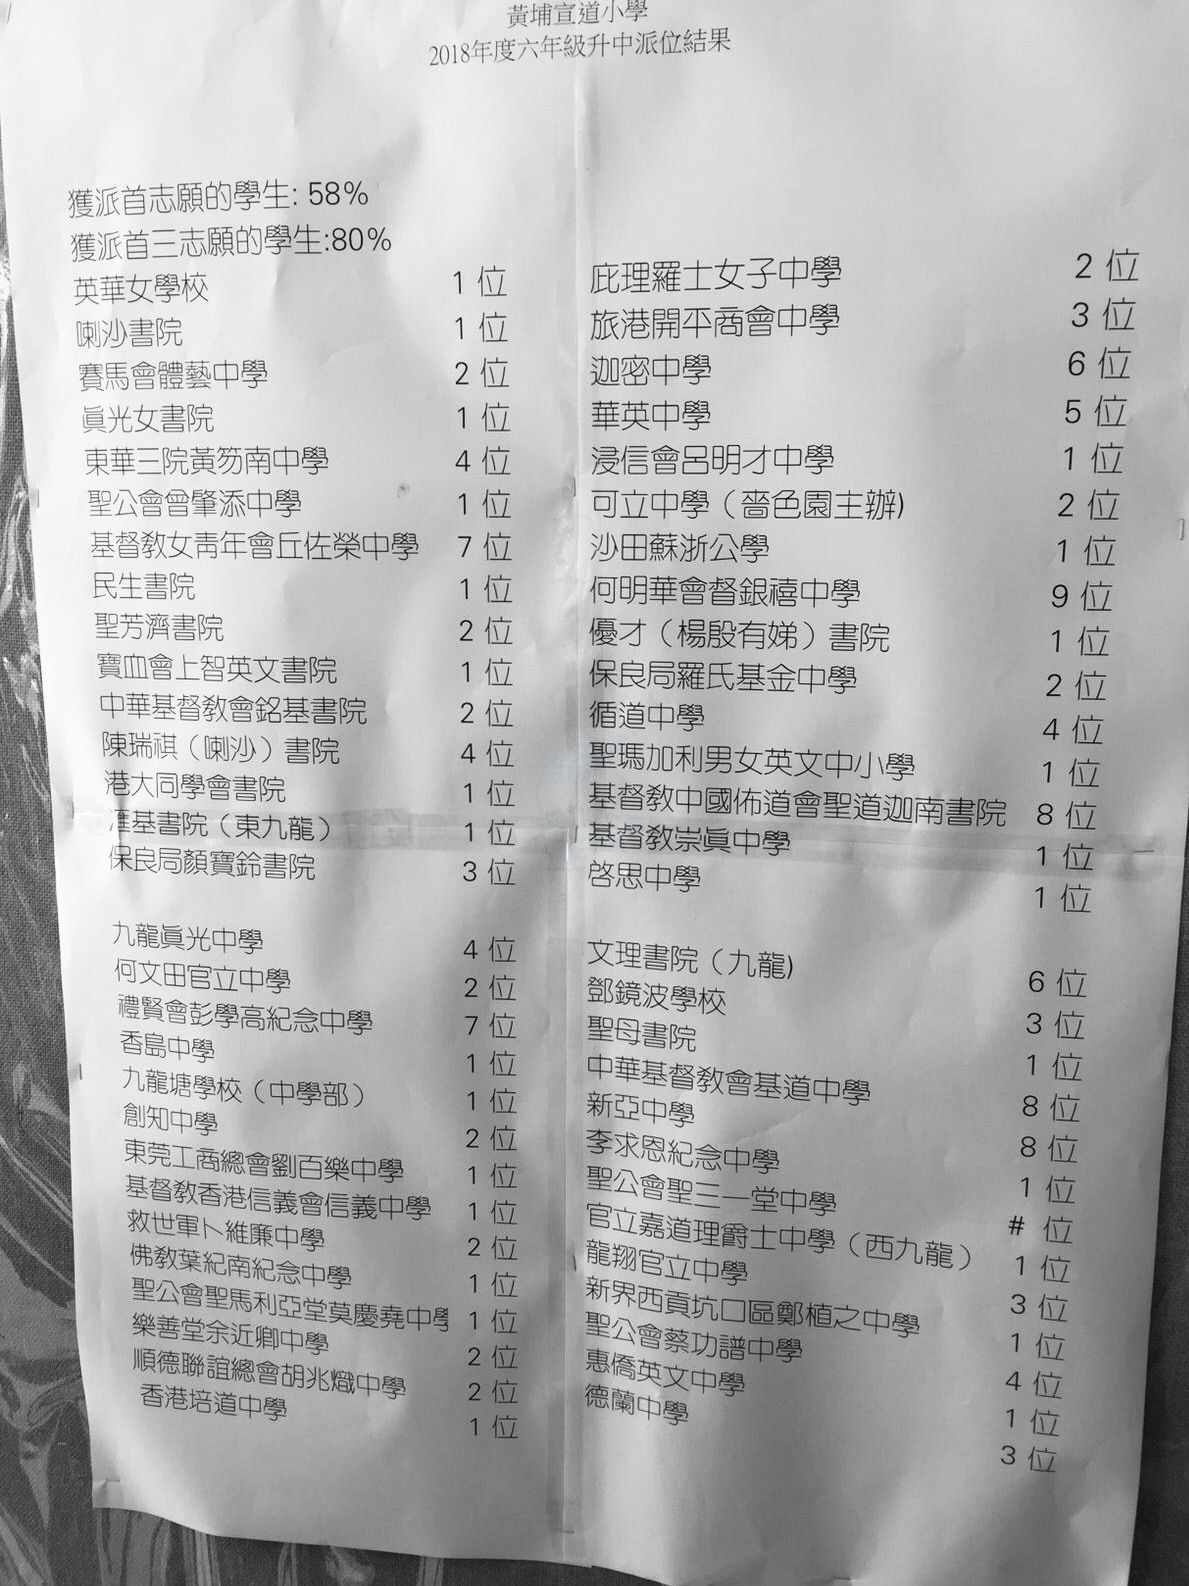 黃埔宣道小學
2018年度六年級升中派位結果
獲派首志願的學生: 58%
獲派首三志願的學生:80%
英華女學校 1 位
喇沙書院 1 位
賽馬會體藝中學 2 位
眞光女書院 1 位
東華三院黃笏南中學 4 位
聖公會曾肇添中學 1 位
基督敎女靑年會丘佐榮中學 7 位
民生書院 1 位
聖芳濟書院 2 位
寶血會上智英文書院 1 位
中華基督敎會銘基書院 2 位
陳瑞祺（喇沙）書院 4 位
港大同學會書院 1 位
滙基書院（東九龍） 1 位
保良局顏寶鈴書院 3 位
九龍眞光中學 4 位
何文田官立中學 2 位
禮賢會彭學高紀念中學 7 位
香島中學 1 位
九龍塘學校（中學部） 1 位
創知中學 2 位
東莞工商總會劉百樂中學 1 位
基督敎香港信義會信義中學 1 位
救世軍卜維廉中學 2 位
佛敎葉紀南紀念中學 1 位
聖公會聖馬利亞堂莫慶堯中學 1 位
樂善堂余近卿中學 2 位
順德聯誼總會胡兆熾中學 2 位
香港培道中學 1 位
庇理羅士女子中學 2 位
旅港開平商會中學 3 位
迦密中學 6 位
華英中學 5 位
浸信會呂明才中學 1 位
可立中學（嗇色園主辦) 2 位
沙田蘇浙公學 1 位
何明華會督銀禧中學 9 位
優才（楊殷有娣）書院 1 位
保良局羅氏基金中學 2 位
循道中學 4 位
聖瑪加利男女英文中小學 1 位
基督敎中國佈道會聖道迦南書院 8 位
基督敎崇眞中學 1 位
啓思中學 1 位
文理書院（九龍) 6 位
鄧鏡波學校 3 位
聖母書院 1 位
中華基督敎會基道中學 8 位
新亞中學 8 位
李求恩紀念中學 1 位
聖公會聖三一堂中學 # 位
官立嘉道理爵士中學（西九龍） 1 位
龍翔官立中學 3 位
新界西貢坑口區鄭植之中學 1 位
聖公會蔡功譜中學 4 位
惠僑英文中學 1 位
德蘭中學 3 位